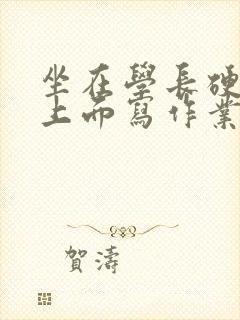 坐在學長硬
上而寫作業
賀濤